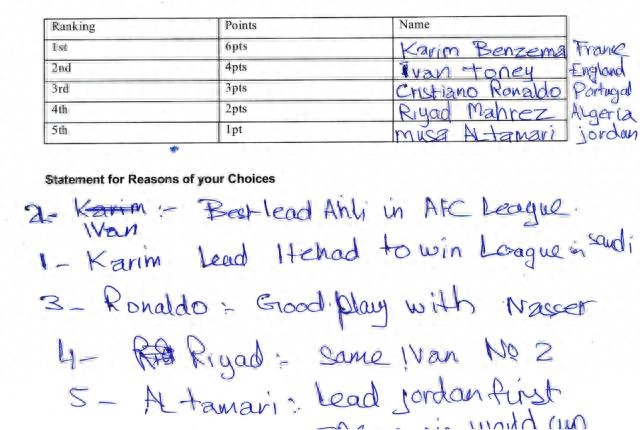 Ranking Points Name
1st 6pts Karim Benzema France
2nd 4pts Ivan Toney England
3rd 3pts Cristiano Ronaldo Portugal
4th 2pts Riyad Mahrez Algeria
5th 1pt musa AL tamari jordan
Statement for Reasons of your Choices
2- Karim :- Best lead Ahli in AFC League.
IVan
1- Karim Lead Itehad to win League in saudi
3- Ronaldo :- Good play with Nasser
4- Riyad :- same IVan No 2
5- AL tamari : Lead jordan first
would cup